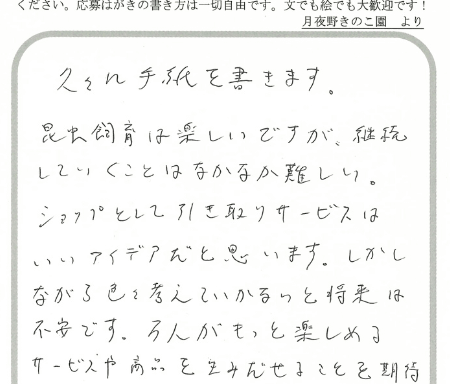 ください。応募はがきの書き方は一切自由です。文でも絵でも大歓迎です！
月夜野きのこ園　より
久々に手紙を書きます。
昆虫飼育は楽しいですが、継続
していくことはなかなか難しい。
ショップとして引き取りサービスは
いいアイデアだと思います。しかし
ながら色々考えていかないと将来は
不安です。万人がもっと楽しめる
サービスや商品を生みだせることを期待